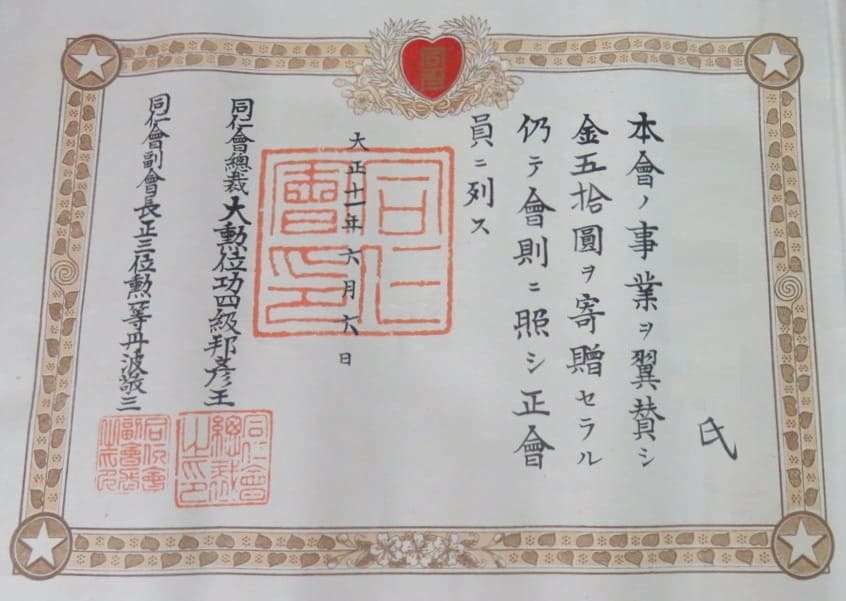 同仁
氏
本會ノ事業ヲ翼賛シ
金五拾圓ヲ寄贈セラル
仍テ會則ニ照シ正會
員ニ列ス
大正十一年六月六日
同仁會印
同仁會總裁大勲位功四級邦彦王
同仁會總裁之印
同仁會副會長正三位勲一等丹波敬三
同仁會副會長之印